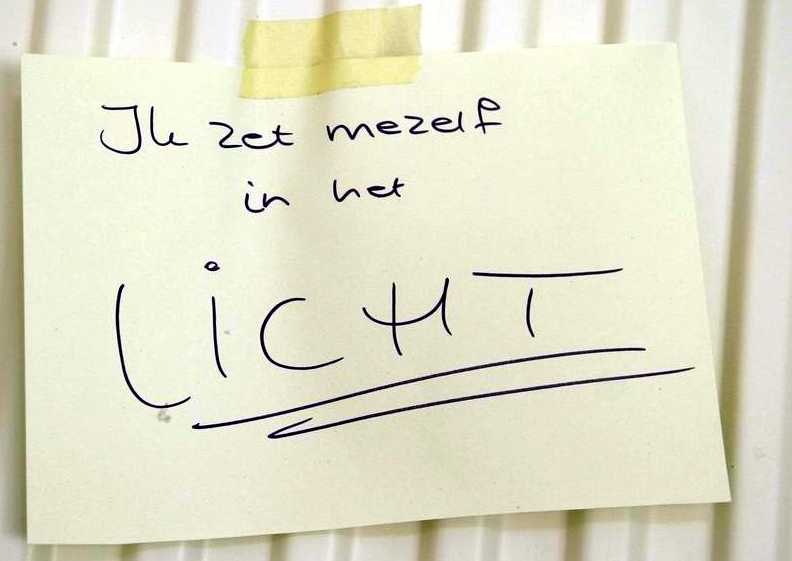 Ik zet mezelf
in het
LiCHT